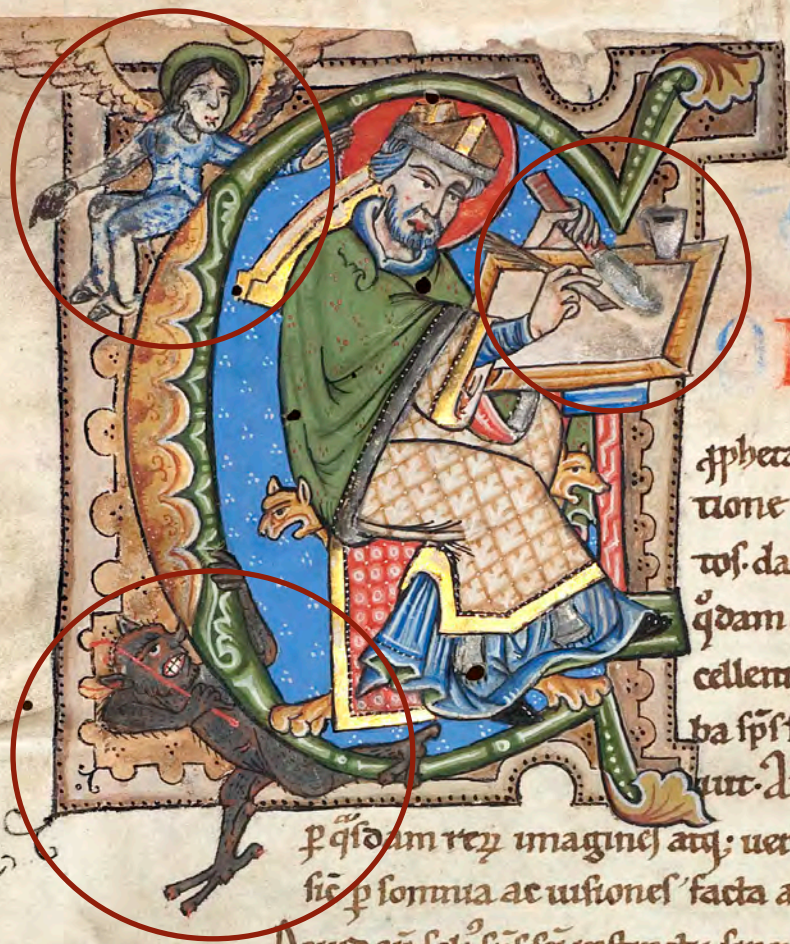 ꝓpheta
tione
tos. da
qͦdam
cellent
ba sp̄s
uit. A
ꝑ qͣsdam reꝝ imagines atq; ue
sic̄ ꝑ somnia ac uisiones facta a